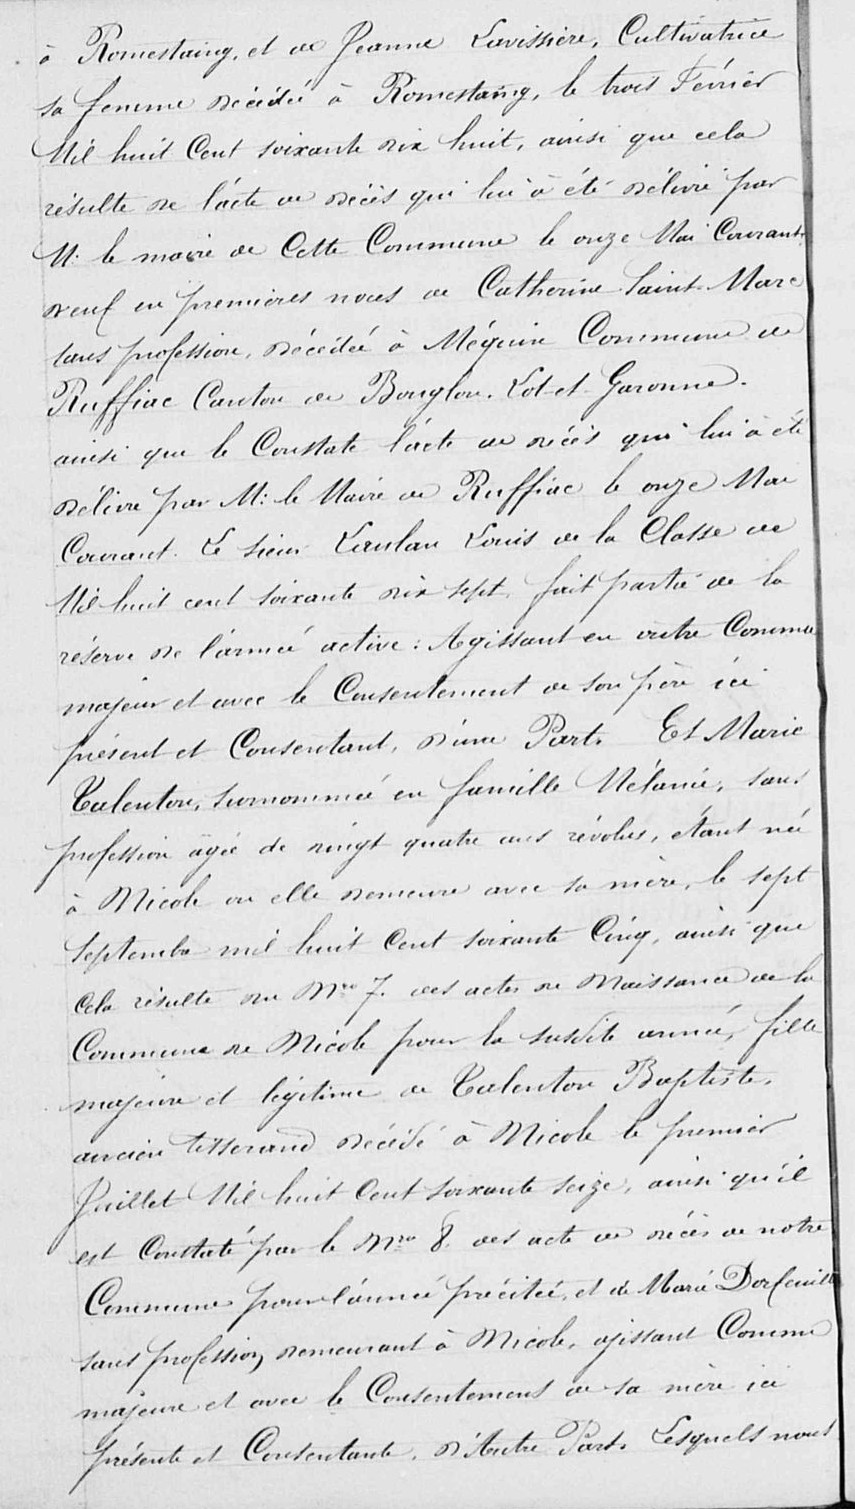 à Romestaing, et de Jeanne Lavissière, Cultivatrice
sa femme décédée à Romestaing, le trois Février
Mil huit Cent soixante dix huit, ainsi que cela
résulte de l'acte de décès qui lui à été délivré par
M. le maire de Cette Commune le onze Mai Courant,
veuf en premières noces de Catherine Saint-Marc
sans profession, décédée à Méguin Commune de
Ruffiac Canton de Bouglon. Lot-et-Garonne.
ainsi que le Constate l'acte de décès qui lui à été
délivré par M: le Maire de Ruffiac le onze Mai
Courant. Le sieur Laulan Louis de la Classe de
Mil huit cent soixante dix sept, fait partie de la
réserve de l'armée active: Agissant en outre Comme
majeur et avec le Consentement de son père ici
présent et Consentant, d'une Part. Et Marie
Calenton, surnommée en famille Mélanie, sans
profession âgée de vingt quatre ans révolus, étant née
à Nicole ou elle demeure avec sa mère, le sept
Septembre mil huit Cent soixante Cinq, ainsi que
cela résulte du Nro 7. des actes de Naissance de la
Commune de Nicole pour la susdite année, fille
majeure et légitime de Calenton Baptiste,
ancien tisserand décédé à Nicole le premier
Juillet Mil huit Cent soixante seize, ainsi qu'il
est Constaté par le Nro 8. des acte de décès de notre
Commune pour l'année précitée, et de Marie Dorfeuille
sans profession, demeurant à Nicole, agissant Comme
majeure et avec le Consentement de sa mère ici
présente et Consentante, d'Autre Part. Lesquels nous